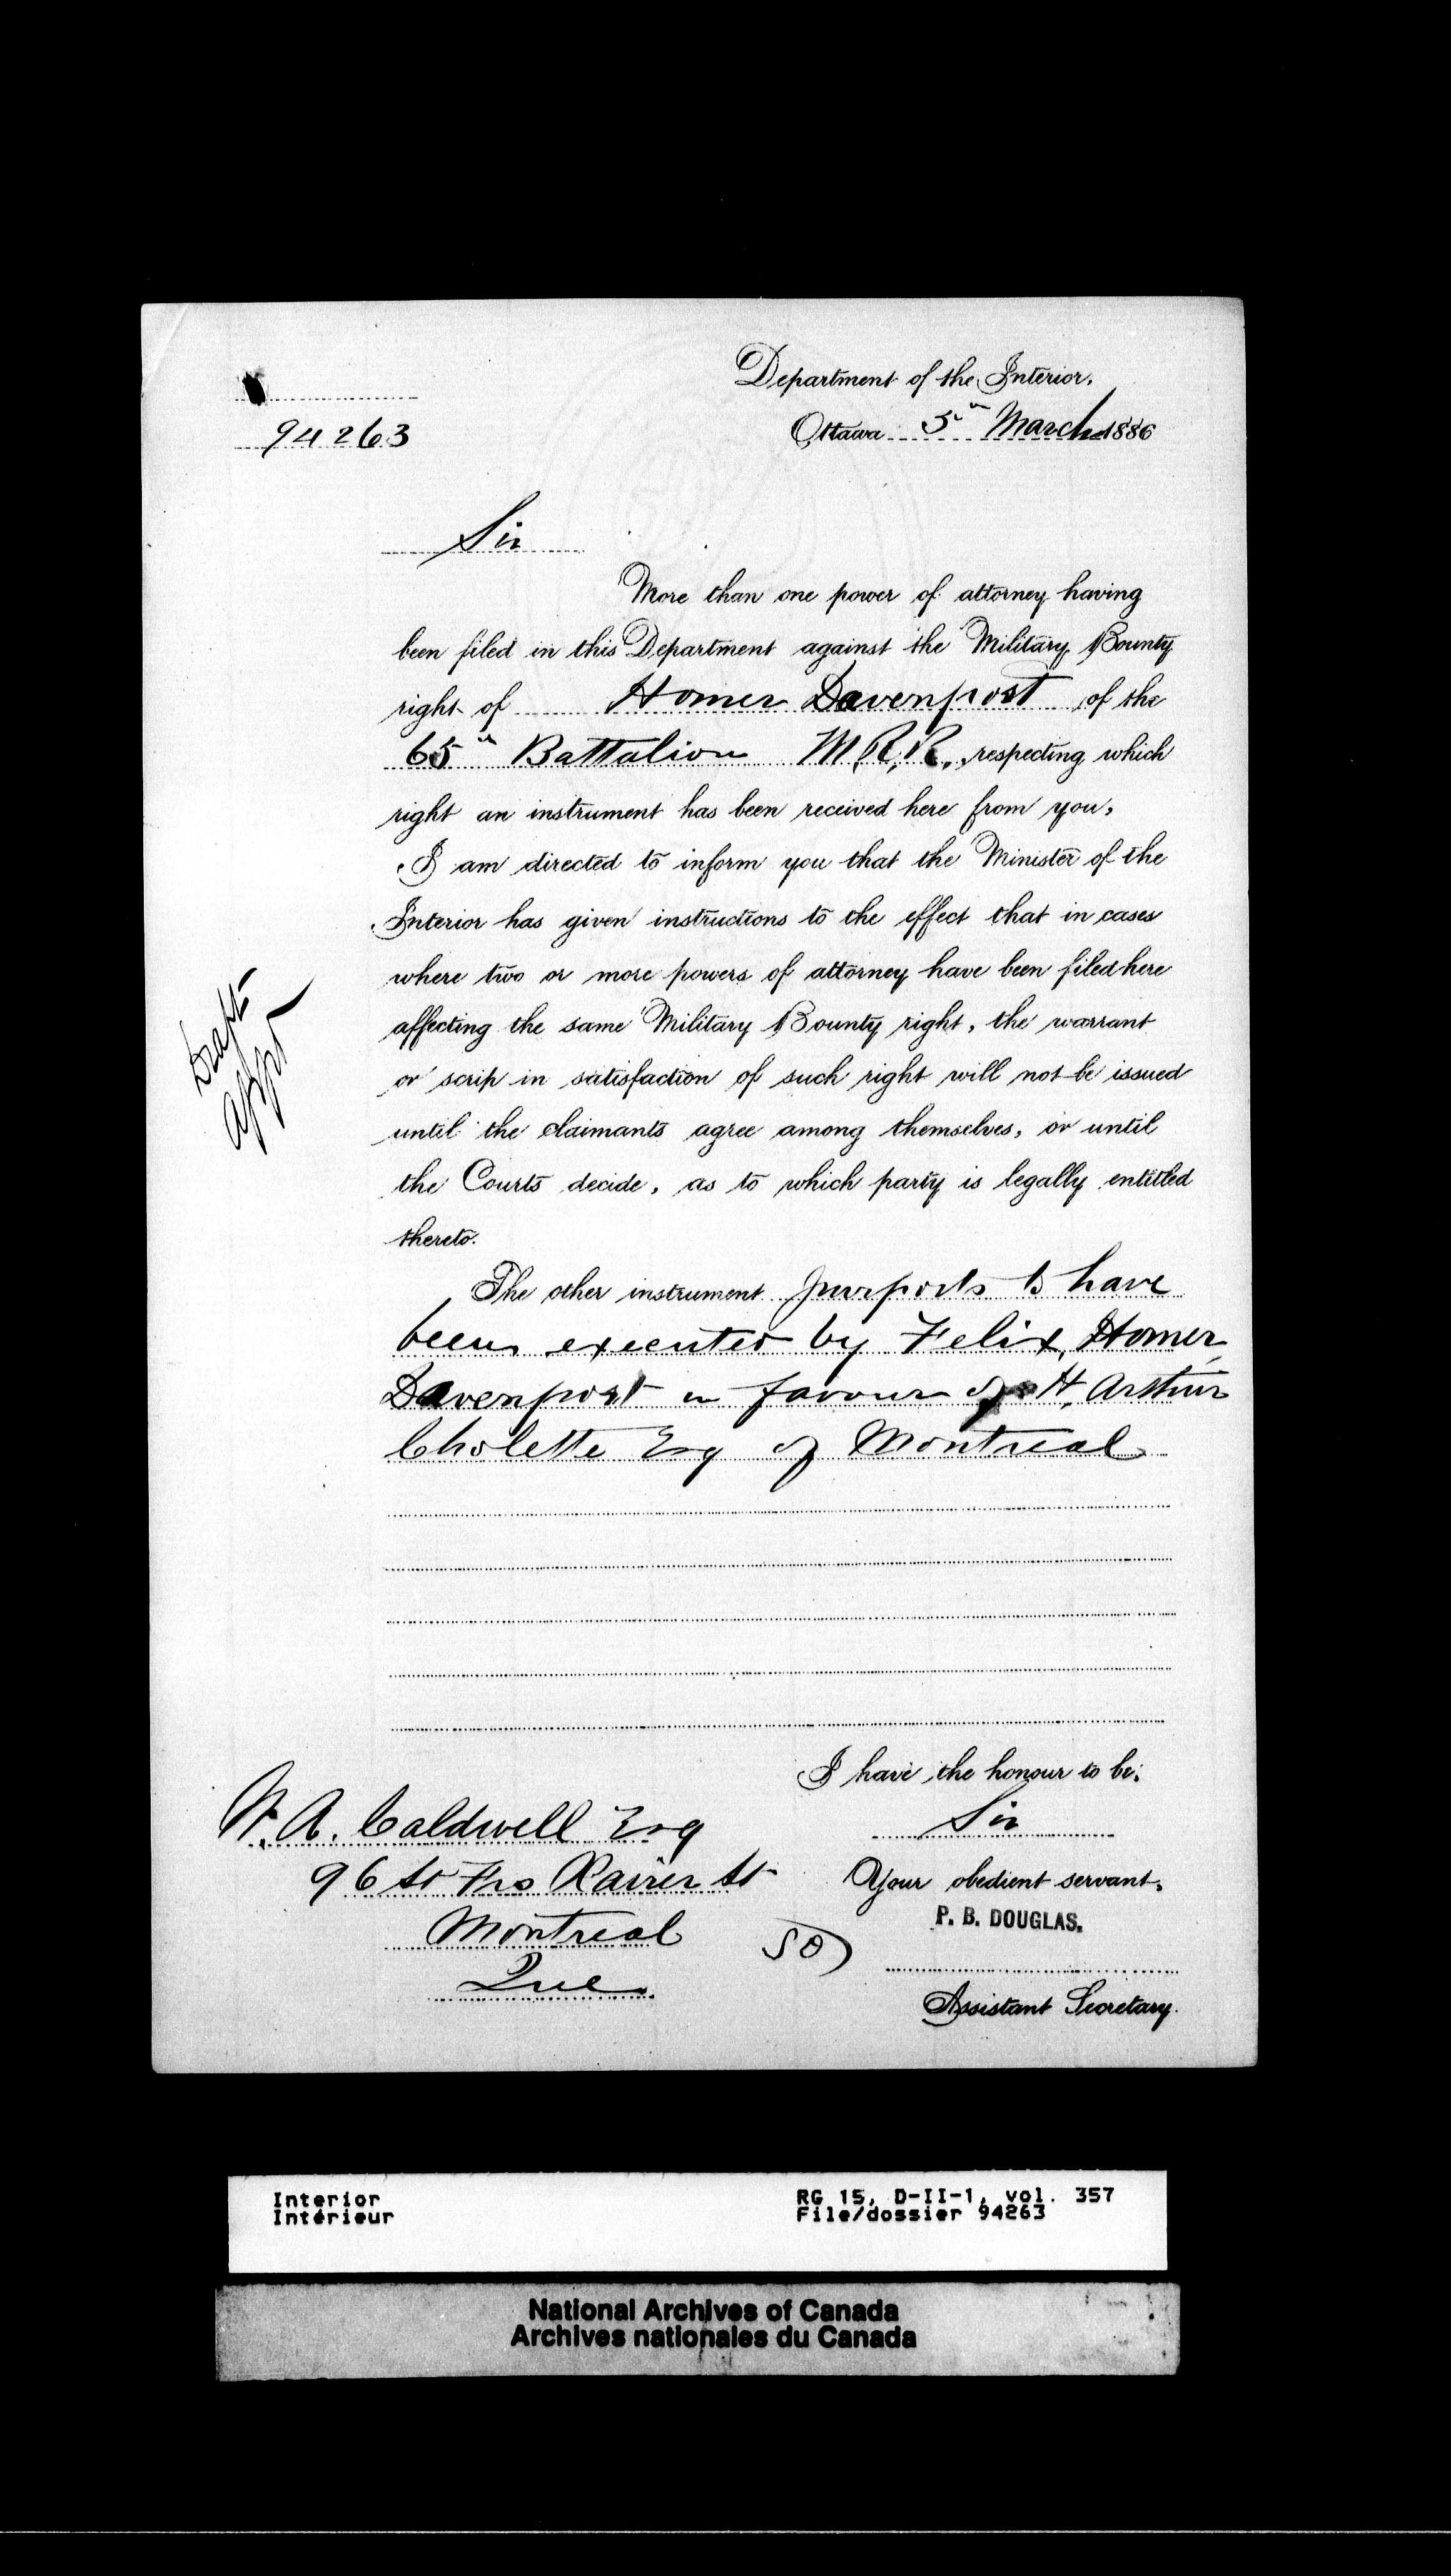 Department of the Interior.
94263
Ottawa 5th March 1886
Sir
More than one power of attorney having
been filed in this Department against the Military Bounty
right of Homer Davenport of the
65th Battalion M.R.R., respecting which
right an instrument has been received here from you,
I am directed to inform you that the Minister of the
Interior has given instructions to the effect that in cases
where two or more powers of attorney have been filed here
affecting the same Military Bounty right, the warrant
or scrip in satisfaction of such right will not be issued
until the claimants agree among themselves, or until
the Courts decide, as to which party is legally entitled
thereto.
Draft
appd
The other instrument purports to have
been executed by Felix, Homer
Davenport in favour of H. Arthur
Cholette Esq of Montreal
I have the honour to be,
Sir
Your obedient servant,
P. B. DOUGLAS.
Assistant Secretary.
A. Caldwell Esq
96 St Frs Xavier St
Montreal
Que.
Interior
Intérieur
RG 15, D-II-1, vol. 357
File/dossier 94263
National Archives of Canada
Archives nationales du Canada